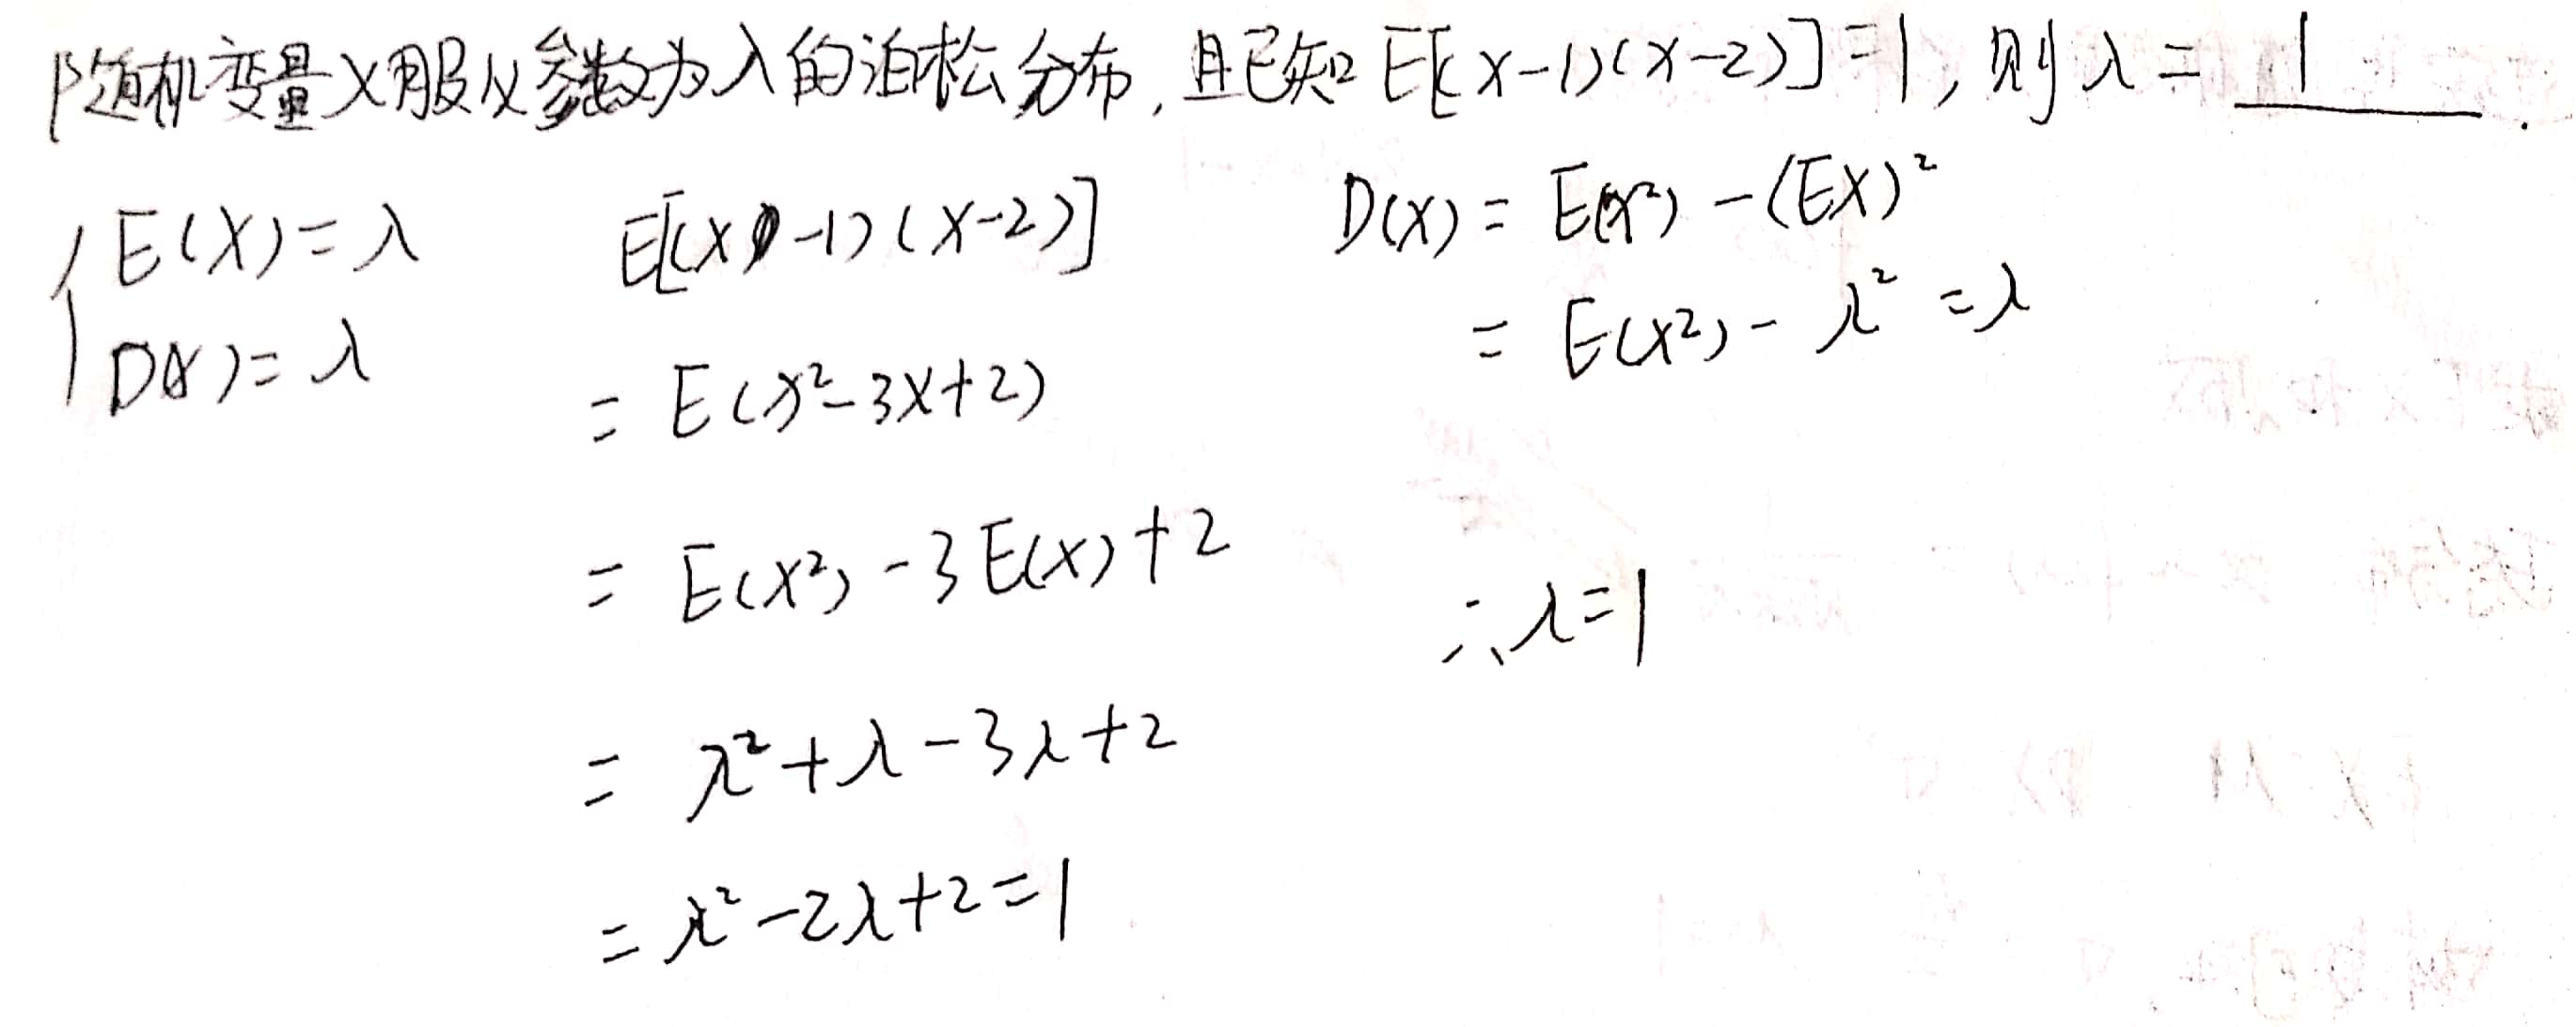 随机变量X服从参数为λ的泊松分布,且已知E[(X-1)(X-2)]=1,则λ= 1 .
E(X)=λ
D(X)=λ
E[(X-1)(X-2)]
= E(X²-3X+2)
= E(X²)-3E(X)+2
= λ²+λ-3λ+2
= λ²-2λ+2=1
D(X)= E(X²)-(EX)²
= E(X²)-λ²=λ
∴λ=1